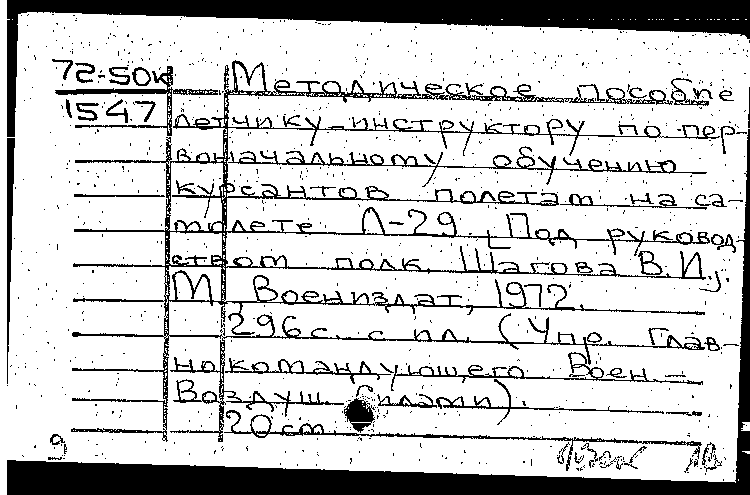 72-50к Методическое пособие
1547 летчику-инструктору по пер-
воначальному обучению
курсантов полетам на са-
молете Л-29. Под руковод-
ством полк. Шагова В.И.,
М., Воениздат, 1972.
296 с. с ил. (Упр. Глав-
нокомандующего Воен.-
Воздуш. Силами).
20 см
9